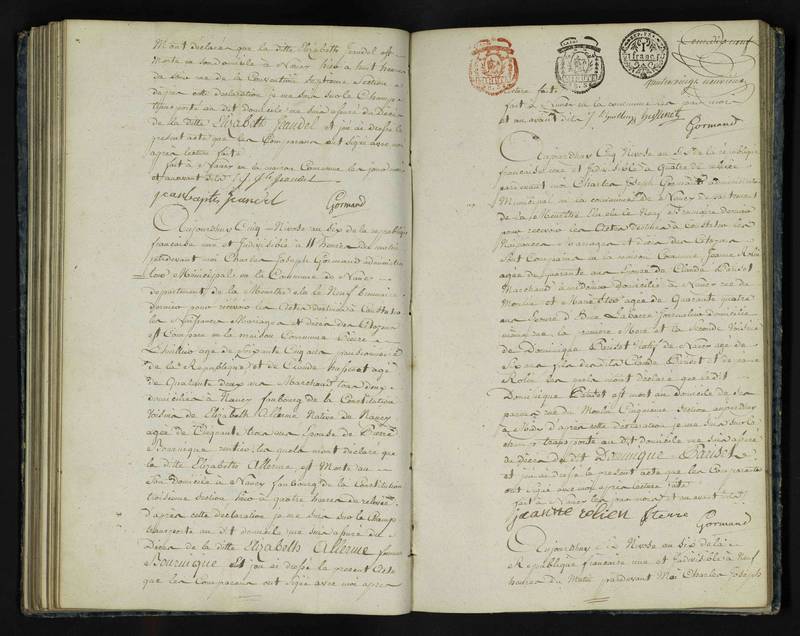 M'ont déclarés que la ditte Elizabeth Jeandel est
Morte en son domicile à Nancy hier à huit heures
du soir rue de la Convention Septieme Section
d'après cette déclaration je me suis sur le Champ
transporté au dit domicile me suis assuré du Décès
de la ditte Elizabeth Jeandel et j'ai dressé le
present acte que les Comparans ont signé avec moi
après lecture faite
fait à Nancy en la maison Commune les jour mois
et an avant dits
jean baptis jeandel Gormand
Aujourdhuy Cinq Nivose an Six de la republique
francaise une et Indivisible à 11 heures du matin
pardevant moi Charles Joseph Gormand administra
teur Municipal en la Commune de Nancy
departement de la Meurthe élu le Neuf brumaire
dernier pour recevoir les Actes destinés à Constater
les Naissances Mariages et décès des Citoyens
est Comparu en la maison Commune Pierre
Lhuillier agé de Cinquante Cinq ans pensionnaire
de la Republique et de Claude husSenet agé
de Quarante deux ans Marchand tous deux
domiciliés à Nancy faubourg de la Constitution
Voisins de Elizabeth Allerme Native de Nancy
agée de Cinquante trois ans Epouse de Pierre
Bournique rentier les quels m'ont déclaré que
la ditte Elizabeth Allerme est Morte au
Son domicile à Nancy faubourg de la Constitution
troisieme section hier à quatre heures de relevée
d'après cette déclaration je me suis sur le Champ
transporté au dit domicile me suis assuré du
Décès de la ditte Elizabeth Allerme femme
Bournique et j'ai dressé le présent Acte
que les Comparans ont Signé avec moi après
1 franc
lecture faite
fait à Nancy en la commune les jour mois
et an avant dits
Gormand
Aujourdhuy Cinq Nivose an Six de la république
francaise une et Indivisible à Quatre de relevée
pardevant moi Charles Joseph Gormand administrateur
Municipal en la commune de Nancy departement
de la Meurthe élu le Neuf brumaire dernier
pour recevoir les Actes destinés à Constater les
Naissances Mariages et décès des Citoyens
Sont Comparus en la maison Commune Jeanne Rolin
agée de quarante ans femme de Claude Parisot
Marchand domicilié à Nancy rue du
Moulin et Marie agée de Quarante quatre
ans femme journalier domiciliée
même rue la premiere Mere et la Seconde Voisine
de Dominique Parisot Natif de Nancy agé de
Six ans fils de Claude Parisot et de Jeanne
Rolin les quels m'ont déclaré que le dit
Dominique Parisot est mort au Domicile de ses
parens rue du Moulin Cinquieme Section aujourdhuy
à Midi d'après cette déclaration je me suis sur le
champ transporté au dit domicile me suis assuré
du Décès du dit Dominique Parisot
et j'ai dressé le present acte que les Comparants
ont Signé avec moi après lecture faite
fait à Nancy les jour mois et an avant dits
jeanne rolien Gormand
Aujourdhuy Six Nivose an Six de la
République francaise une et Indivisible à Neuf
heures du Matin pardevant Moi Charles Joseph